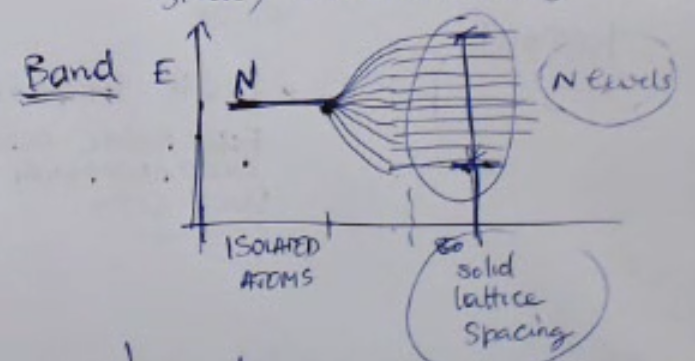 Band E N
N levels
ISOLATED
ATOMS
solid
lattice
spacing